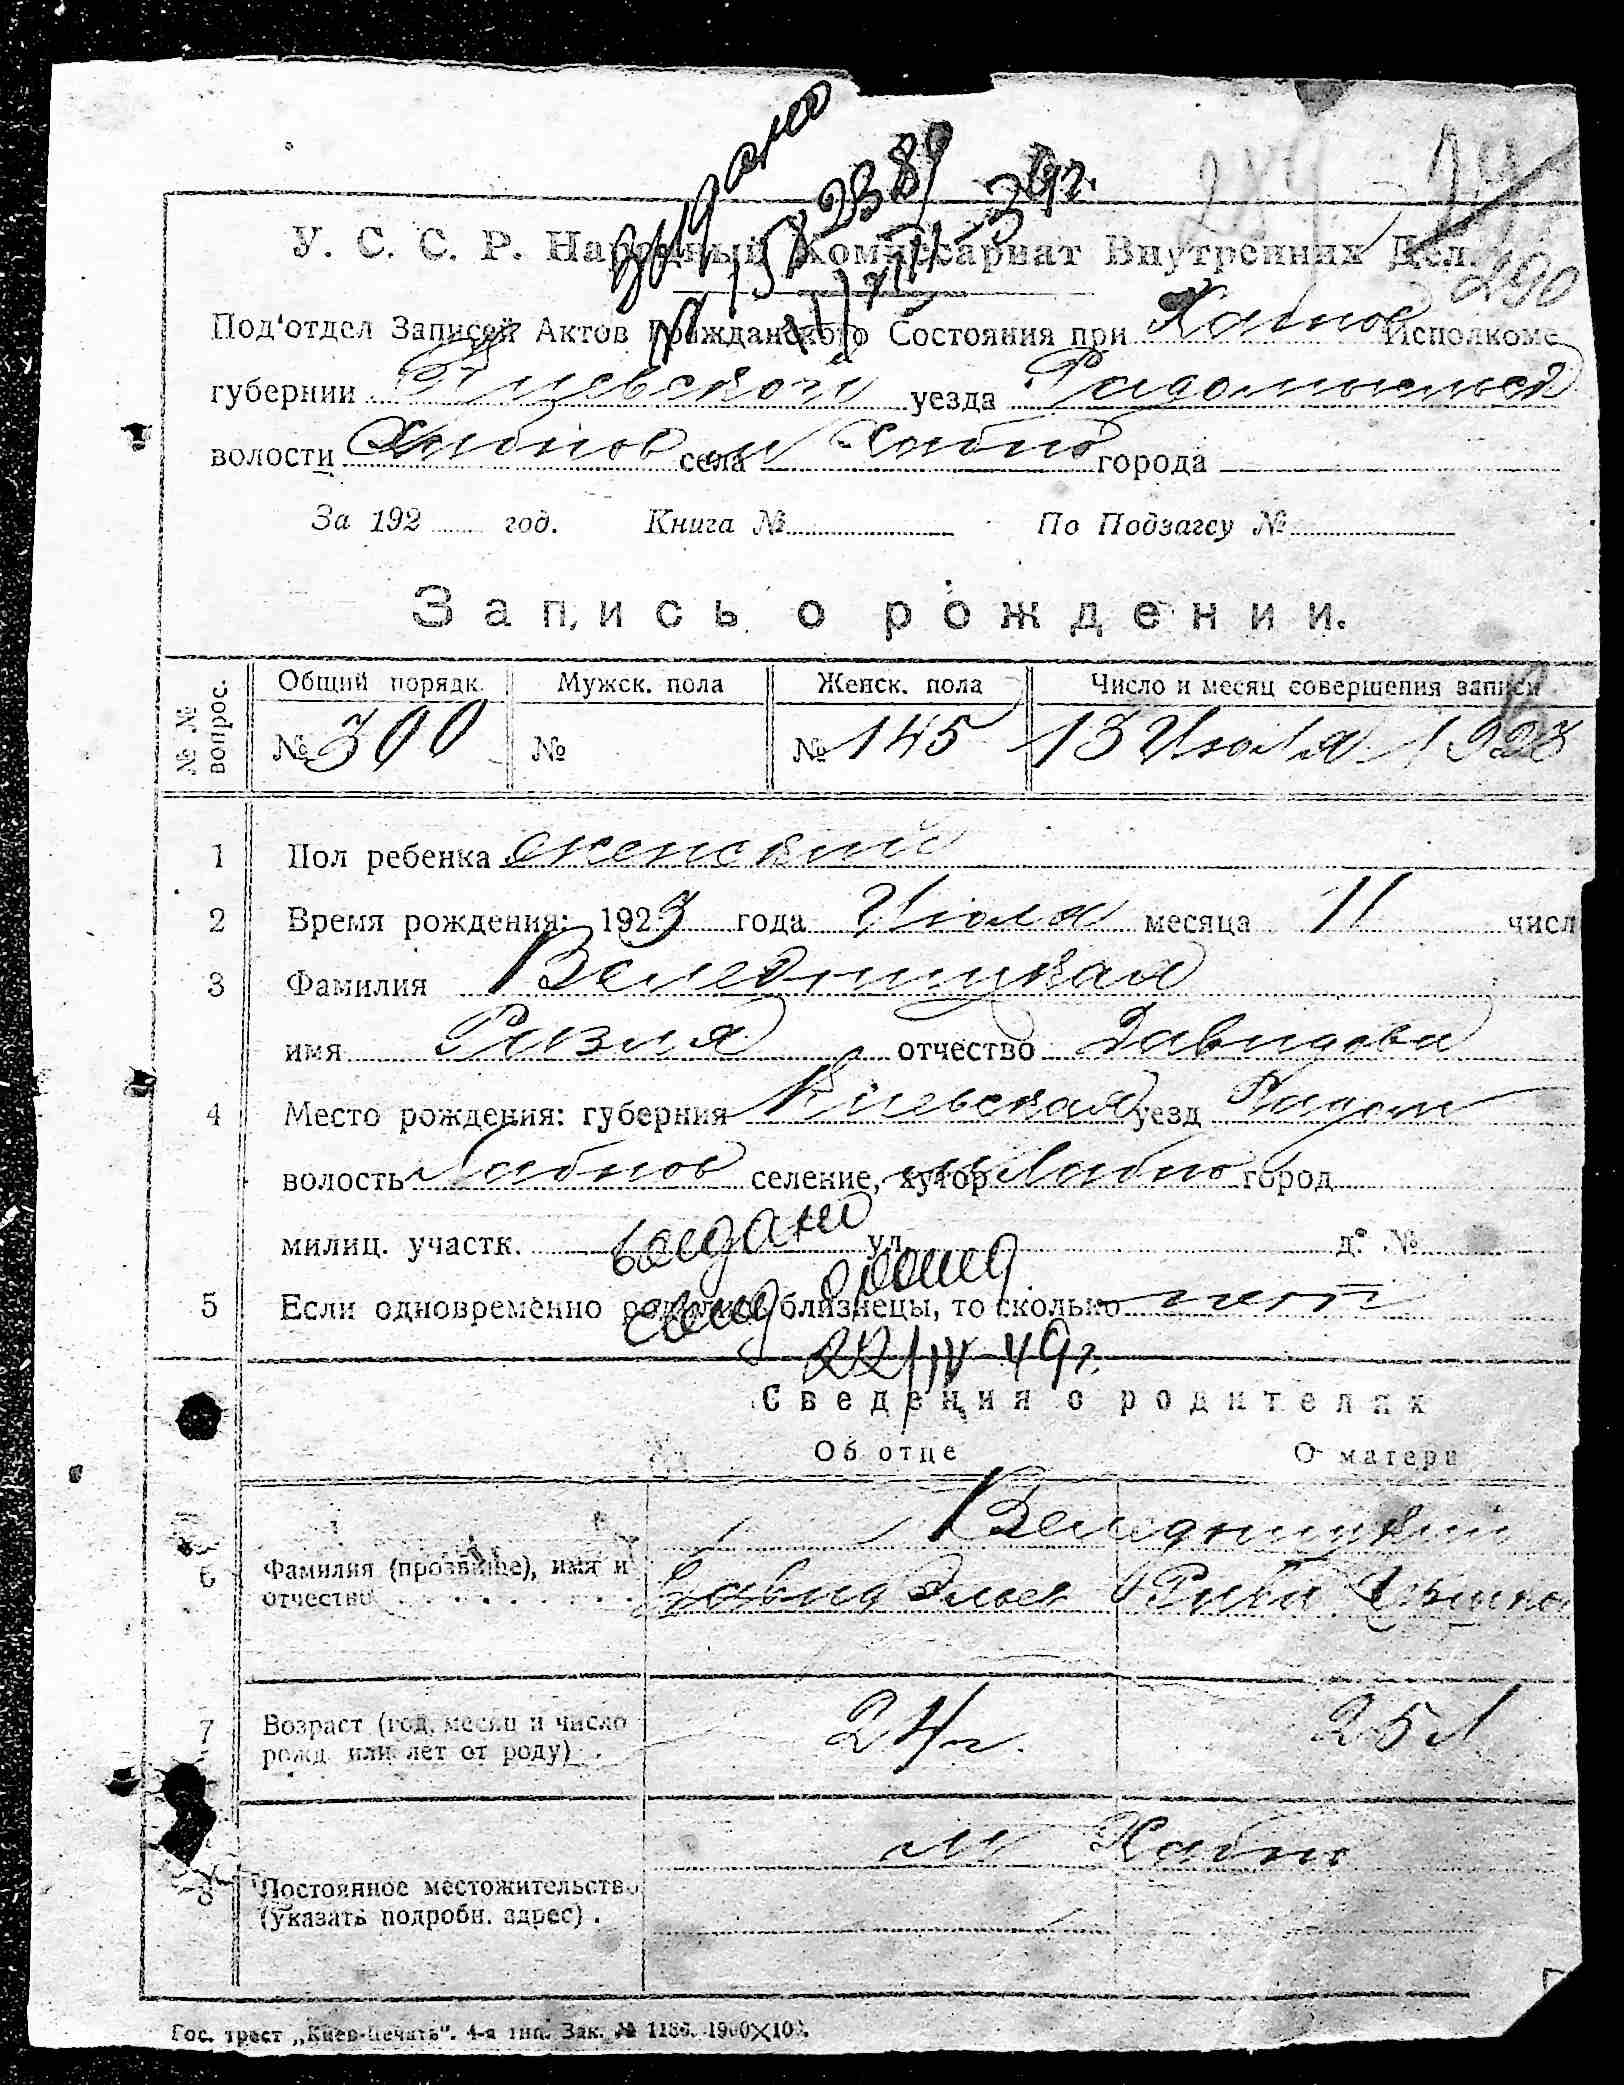 выдано
№ 158 2389
VIII-39г.
284
290
У. С. С. Р. Народный Комиссариат Внутренних Дел.
Под'отдел Записей Актов Гражданского Состояния при Хабнов Исполкоме
губернии Киевской уезда Радомысльск
волости Хабнов села м Хабно города
За 192 год. Книга № По Подзагсу №
Запись о рождении.
№№ вопрос. Общий порядк. Мужск. пола Женск. пола Число и месяц совершения записи
№ 300 № № 145 13 Июля 1923
1 Пол ребенка женский
2 Время рождения: 1923 года Июля месяца 11 числ
3 Фамилия Веледницкая
имя Рызля отчество Давидова
4 Место рождения: губерния Киевская уезд Радом
волость Хабнов селение, хутор м Хабно город
милиц. участк. ул. д. №
выдано
5 Если одновременно родились близнецы, то сколько нет
22/IV-49г.
Сведения о родителях
Об отце О матери
Веледницкий
6 Фамилия (прозвище), имя и отчество Давид Эльев Рива
7 Возраст (год, месяц и число рожд. или лет от роду) . 24 г. 25 л
м Хабно
8 Постоянное местожительство (указать подробн. адрес) .
Гос. трест „Киев-Печать". 4-я тип. Зак. № 1186.